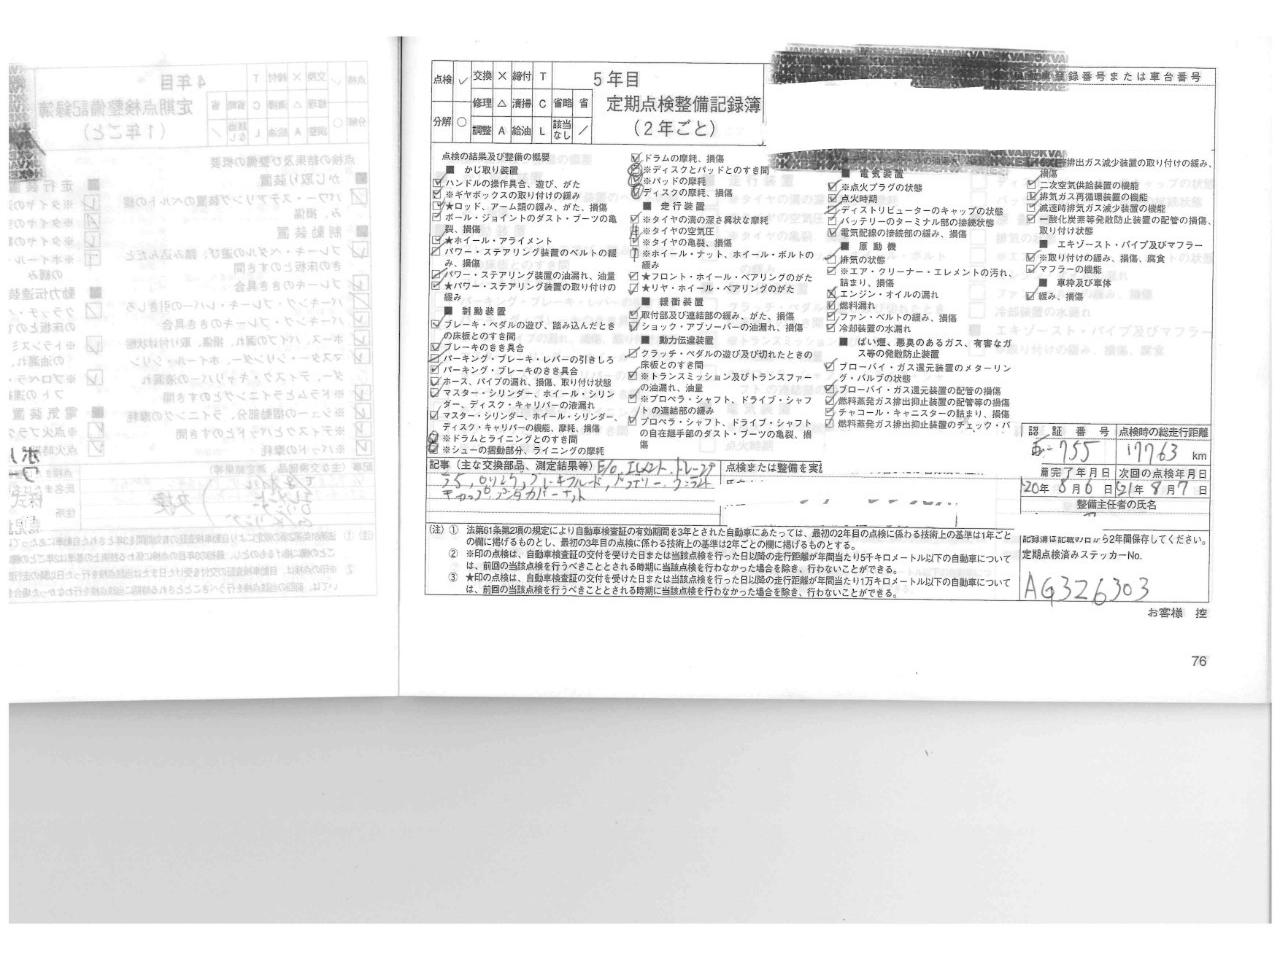 点検 ✓ 交換 × 締付 T
修理 △ 清掃 C 省略 省
分解 ○ 調整 A 給油 L 該当なし ／
5年目
定期点検整備記録簿
(2年ごと)
登録番号または車台番号
点検の結果及び整備の概要
■ かじ取り装置
ハンドルの操作具合、遊び、がた
※ギヤボックスの取り付けの緩み
★ロッド、アーム類の緩み、がた、損傷
ボール・ジョイントのダスト・ブーツの亀
裂、損傷
★ホイール・アライメント
パワー・ステアリング装置のベルトの緩
み、損傷
パワー・ステアリング装置の油漏れ、油量
★パワー・ステアリング装置の取り付けの
緩み
■ 制動装置
ブレーキ・ペダルの遊び、踏み込んだとき
の床板とのすき間
ブレーキのきき具合
パーキング・ブレーキ・レバーの引きしろ
パーキング・ブレーキのきき具合
ホース、パイプの漏れ、損傷、取り付け状態
マスター・シリンダ、ホイール・シリン
ダー、ディスク・キャリパーの液漏れ
マスター・シリンダー、ホイール・シリンダー、
ディスク・キャリパーの機能、摩耗、損傷
※ドラムとライニングとのすき間
※シューの摺動部分、ライニングの摩耗
ドラムの摩耗、損傷
※ディスクとパッドとのすき間
※パッドの摩耗
ディスクの摩耗、損傷
■ 走行装置
※タイヤの溝の深さ異状な摩耗
※タイヤの空気圧
※タイヤの亀裂、損傷
※ホイール・ナット、ホイール・ボルトの
緩み
★フロント・ホイール・ベアリングのがた
★リヤ・ホイール・ベアリングのがた
■ 緩衝装置
取付部及び連結部の緩み、がた、損傷
ショック・アブソーバーの油漏れ、損傷
■ 動力伝達装置
クラッチ・ペダルの遊び及び切れたときの
床板とのすき間
※トランスミッション及びトランスファー
の油漏れ、油量
※プロペラ・シャフト、ドライブ・シャフ
トの連結部の緩み
プロペラ・シャフト、ドライブ・シャフト
の自在継手部のダスト・ブーツの亀裂、損
傷
■ 電気装置
※点火プラグの状態
点火時期
ディストリビューターのキャップの状態
バッテリーのターミナル部の接続状態
電気配線の接続部の緩み、損傷
■ 原動機
排気の状態
※エア・クリーナー・エレメントの汚れ、
詰まり、損傷
エンジン・オイルの漏れ
燃料漏れ
ファン・ベルトの緩み、損傷
冷却装置の水漏れ
■ ばい煙、悪臭のあるガス、有害なガ
ス等の発散防止装置
ブローバイ・ガス還元装置のメターリン
グ・バルブの状態
ブローバイ・ガス還元装置の配管の損傷
燃料蒸発ガス排出抑止装置の配管等の損傷
チャコール・キャニスターの詰まり、損傷
燃料蒸発ガス排出抑止装置のチェック・バ
排出ガス減少装置の取り付けの緩み、
損傷
二次空気供給装置の機能
排気ガス再循環装置の機能
減速時排気ガス減少装置の機能
一酸化炭素等発散防止装置の配管の損傷、
取り付け状態
■ エキゾースト・パイプ及びマフラー
※取り付けの緩み、損傷、腐食
マフラーの機能
■ 車枠及び車体
緩み、損傷
認証番号 点検時の総走行距離
755 17763 km
完了年月日 次回の点検年月日
20年8月6日 21年8月7日
整備主任者の氏名
記事 (主な交換部品、測定結果等) E/O, エレメント, ドレーンプ
ラグ, Oリング, ブレーキフルード, バッテリー,
キャップ アンダカバーナット
点検または整備を実
(注) ① 法第61条第2項の規定により自動車検査証の有効期間を3年とされた自動車にあたっては、最初の2年目の点検に係わる技術上の基準は1年ごと
の欄に掲げるものとし、最初の3年目の点検に係わる技術上の基準は2年ごとの欄に掲げるものとする。
② ※印の点検は、自動車検査証の交付を受けた日または当該点検を行った日以降の走行距離が年間当たり5千キロメートル以下の自動車について
は、前回の当該点検を行うべきこととされる時期に当該点検を行わなかった場合を除き、行わないことができる。
③ ★印の点検は、自動車検査証の交付を受けた日または当該点検を行った日以降の走行距離が年間当たり1万キロメートル以下の自動車について
は、前回の当該点検を行うべきこととされる時期に当該点検を行わなかった場合を除き、行わないことができる。
記録簿は記載の日から2年間保存してください。
定期点検済みステッカーNo.
AG326303
お客様 控
76